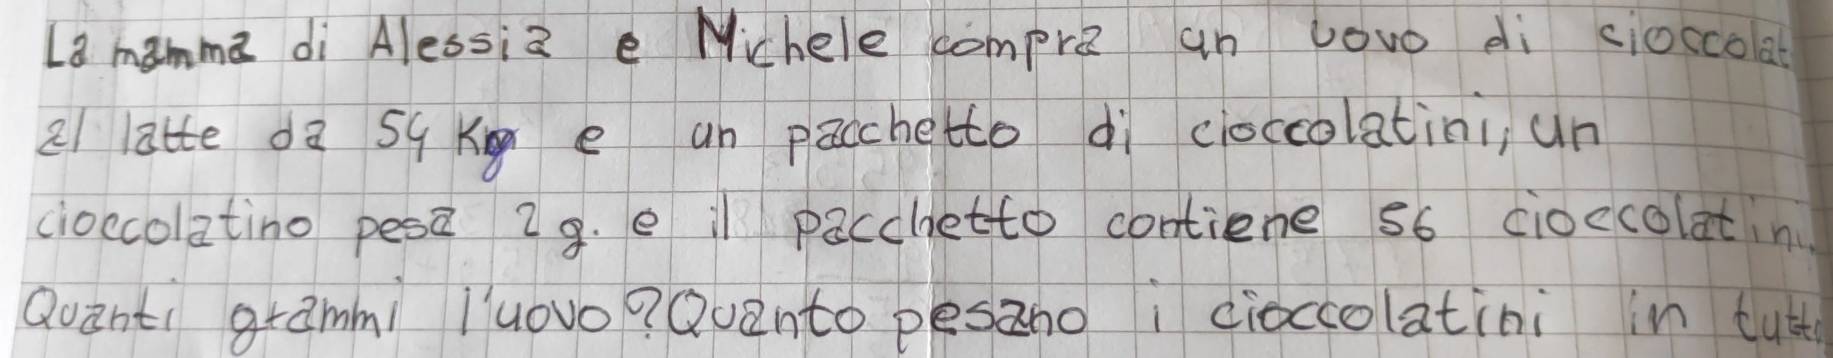 La mamma di Alessia e Michele compra un uovo di cioccolat
al latte da 54 Kg e un pacchetto di cioccolatini, un
cioccolatino pesa 2 g. e il pacchetto contiene 56 cioccolatini.
Quanti grammi l'uovo? Quanto pesano i cioccolatini in tutto